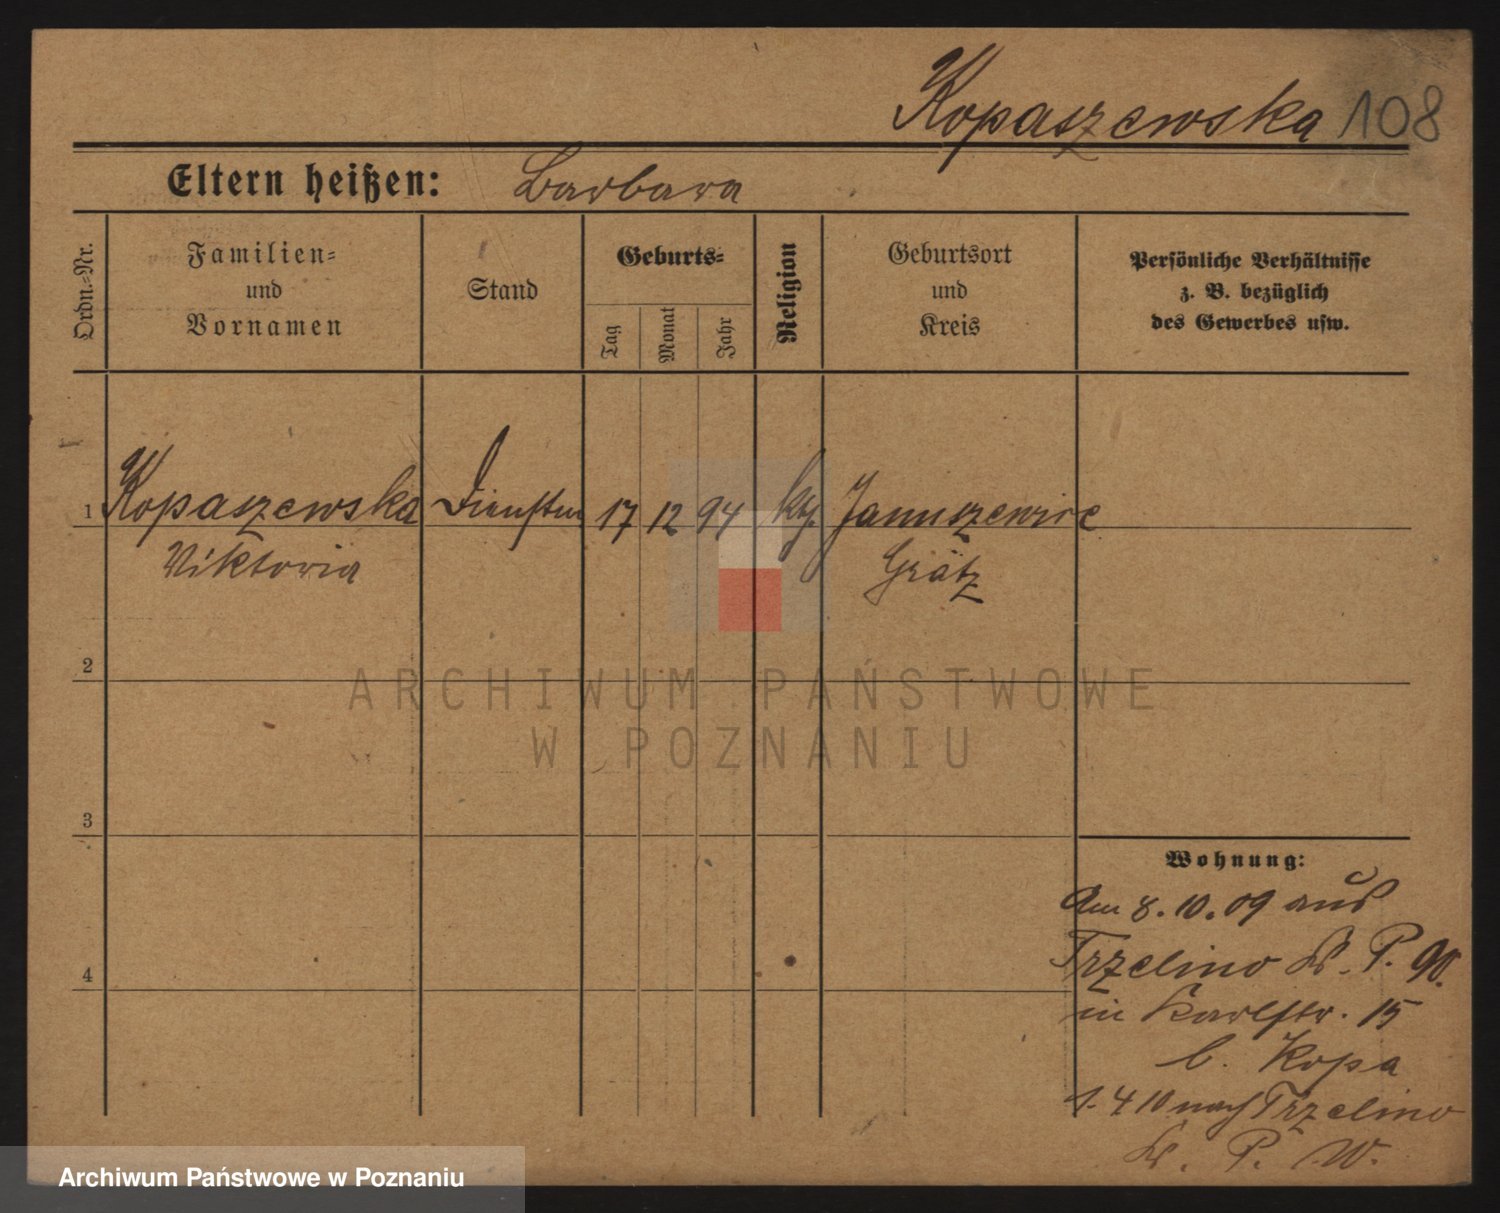 Kopaszewska 108
Eltern heißen: Barbara
Ordn.-Nr.
Familien-
und
Vornamen
Stand
Geburts-
Tag
Monat
Jahr
Religion
Geburtsort
und
Kreis
Persönliche Verhältnisse
z. B. bezüglich
des Gewerbes usw.
1 Kopaszewska Dienstm 17 12 94 kt. Januszewice
Viktoria Grätz
2
3
4
Wohnung:
Am 8. 10. 09 aus
Trzelino Kr. P. W.
in Karlstr. 15
b. Kopa
1. 4 10 nach Trzelino
Kr. P. W.
ARCHIWUM PAŃSTWOWE
W POZNANIU
Archiwum Państwowe w Poznaniu